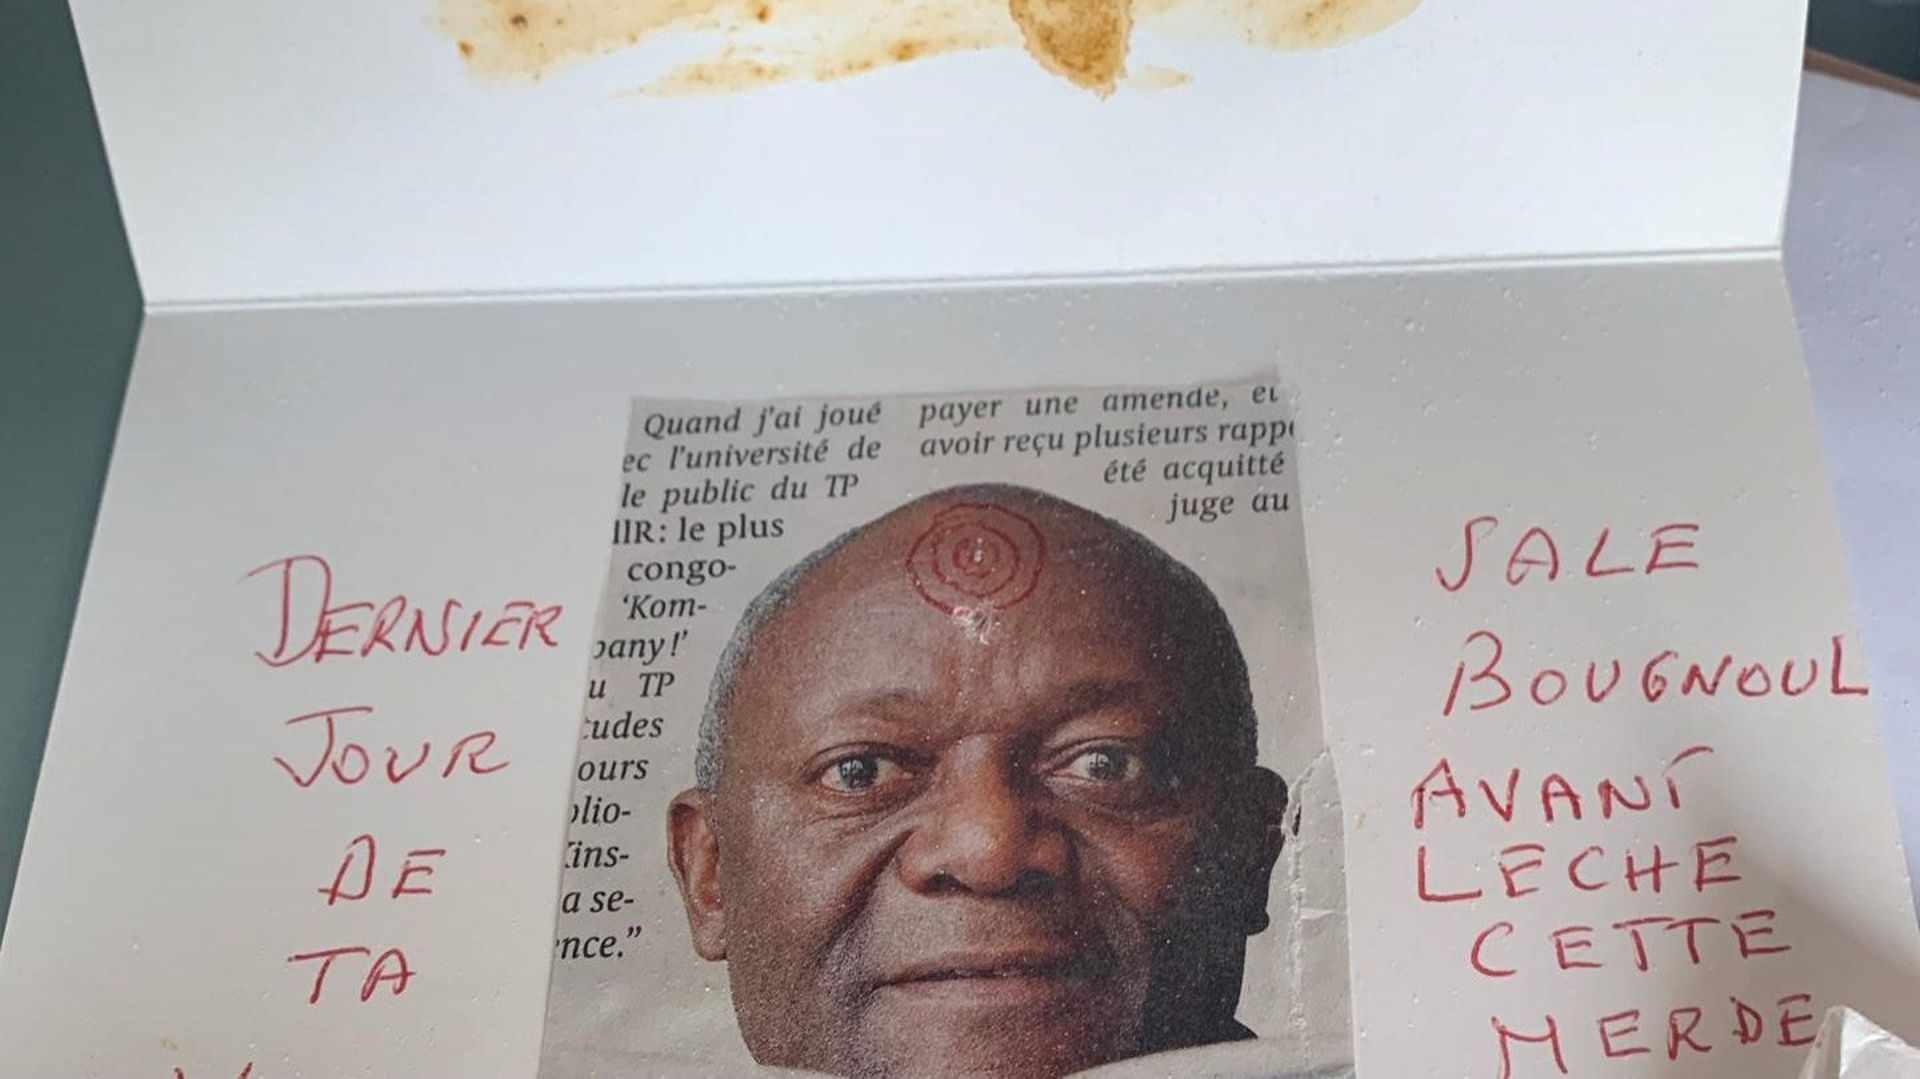 Quand j'ai joué
ec l'université de
le public du TP
IIR: le plus
congo-
‘Kom-
pany!’
u TP
tudes
ours
olio-
Kins-
a se-
nce.”
payer une amende, et
avoir reçu plusieurs rapp
été acquitté
juge au
DERNIER
JOUR
DE
TA
SALE
BOUGNOUL
AVANT
LECHE
CETTE
MERDE